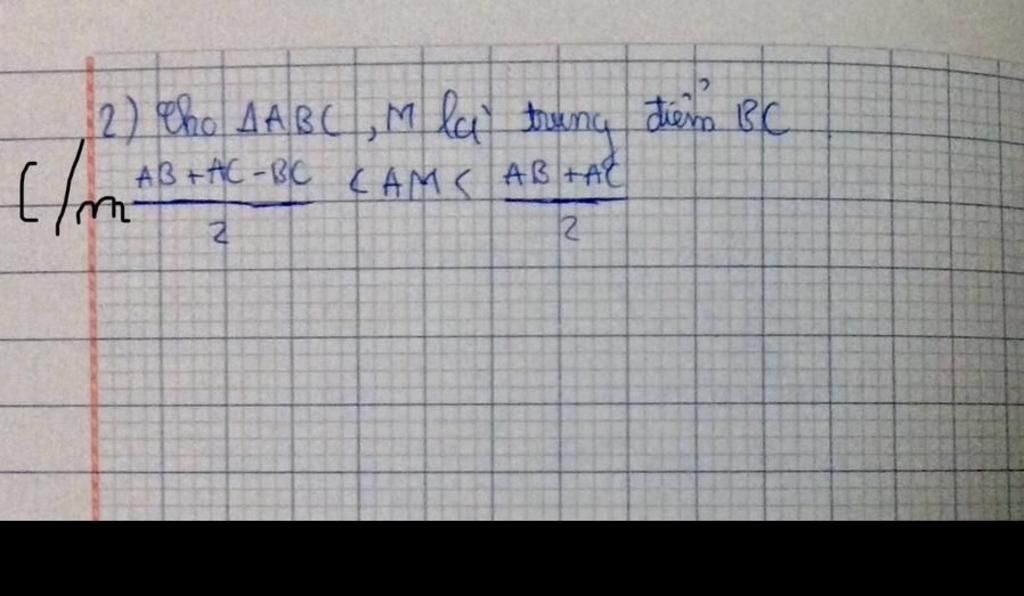 2) Cho ΔABC, M là trung điểm BC
C/m (AB + AC - BC)/2 < AM < (AB + AC)/2